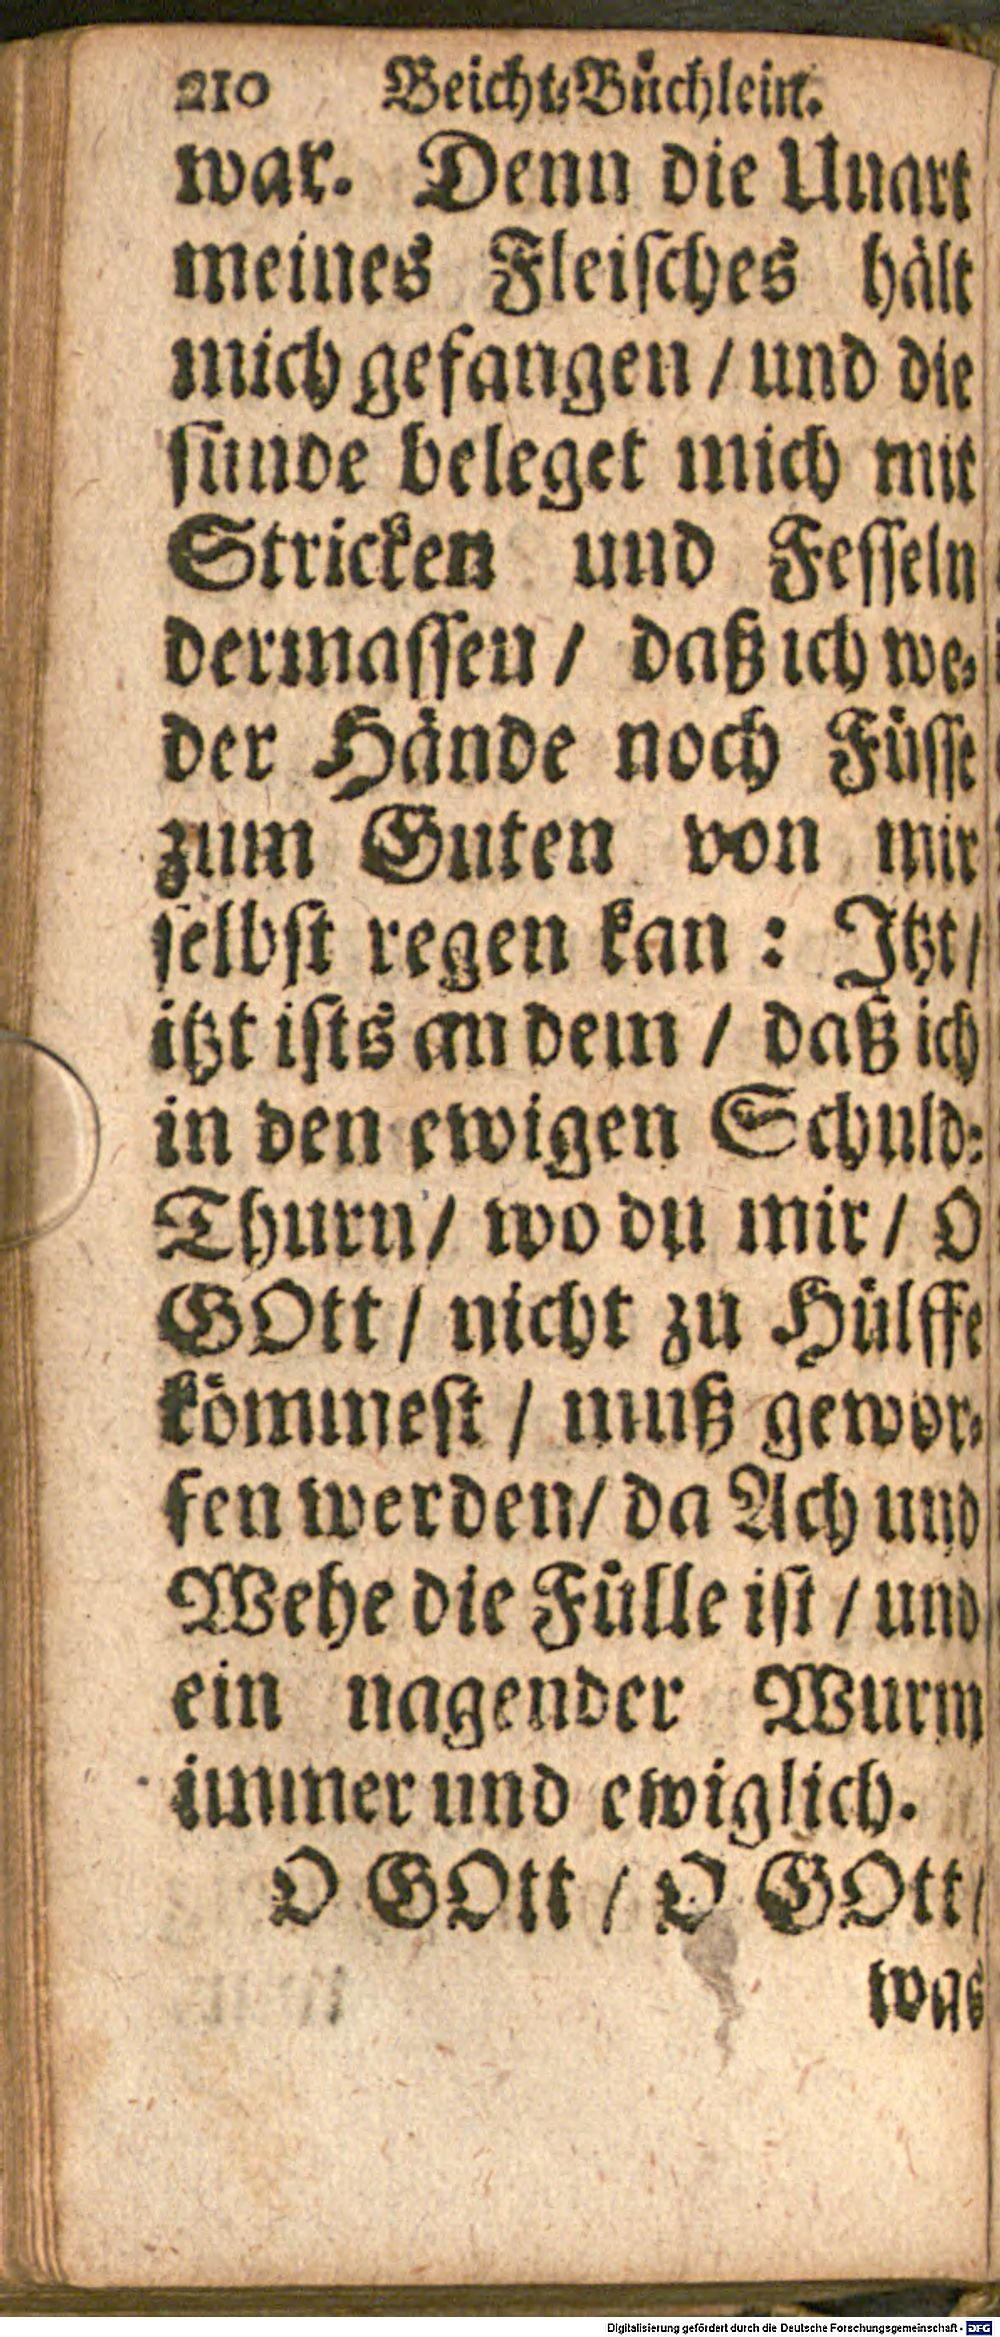 210 Beicht-Büchlein.
war. Denn die Unart
meines Fleisches hält
mich gefangen / und die
sünde beleget mich mit
Stricken und Fesseln
dermassen / daß ich we-
der Hände noch Füsse
zum Guten von mir
selbst regen kan : Jtzt /
itzt ists an dem / daß ich
in den ewigen Schuld-
Thurn / wo du mir / O
GOtt / nicht zu Hülffe
kömmest / muß gewor-
fen werden / da Ach und
Wehe die Fülle ist / und
ein nagender Wurm
immer und ewiglich.
O GOtt / O GOtt /
was
Digitalisierung gefördert durch die Deutsche Forschungsgemeinschaft - DFG